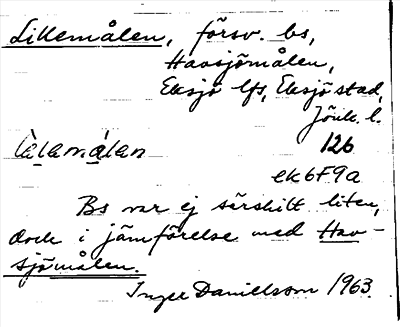 Lillemålen, försv. bs,
Havsjömålen,
Eksjö lfs, Eksjö stad,
Jönk. l.
126
lilamålan
ek6F9a
Bs var ej särskilt liten,
dock i jämförelse med Hav-
sjömålen.
Inger Danielsson 1963.